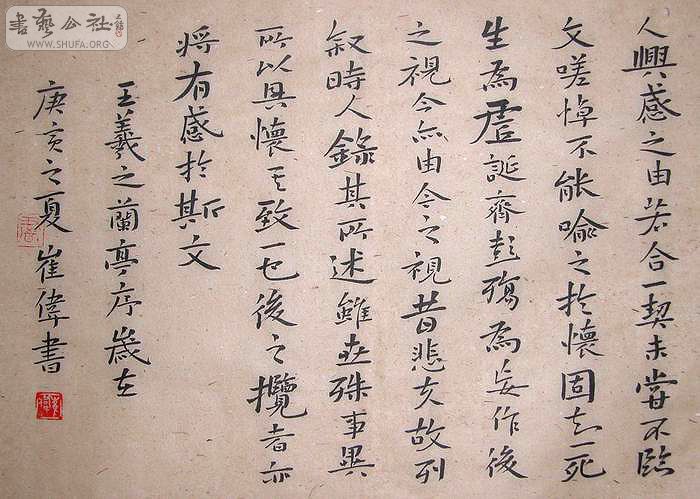 人興感之由若合一契未嘗不臨
文嗟悼不能喻之於懷固知一死
生為虛誕齊彭殤為妄作後
之視今亦由今之視昔悲夫故列
叙時人錄其所述雖世殊事異
所以興懷其致一也後之攬者亦
將有感於斯文
王羲之蘭亭序歲在
庚亥之夏崔偉書
書藝公社
WWW.SHUFA.ORG